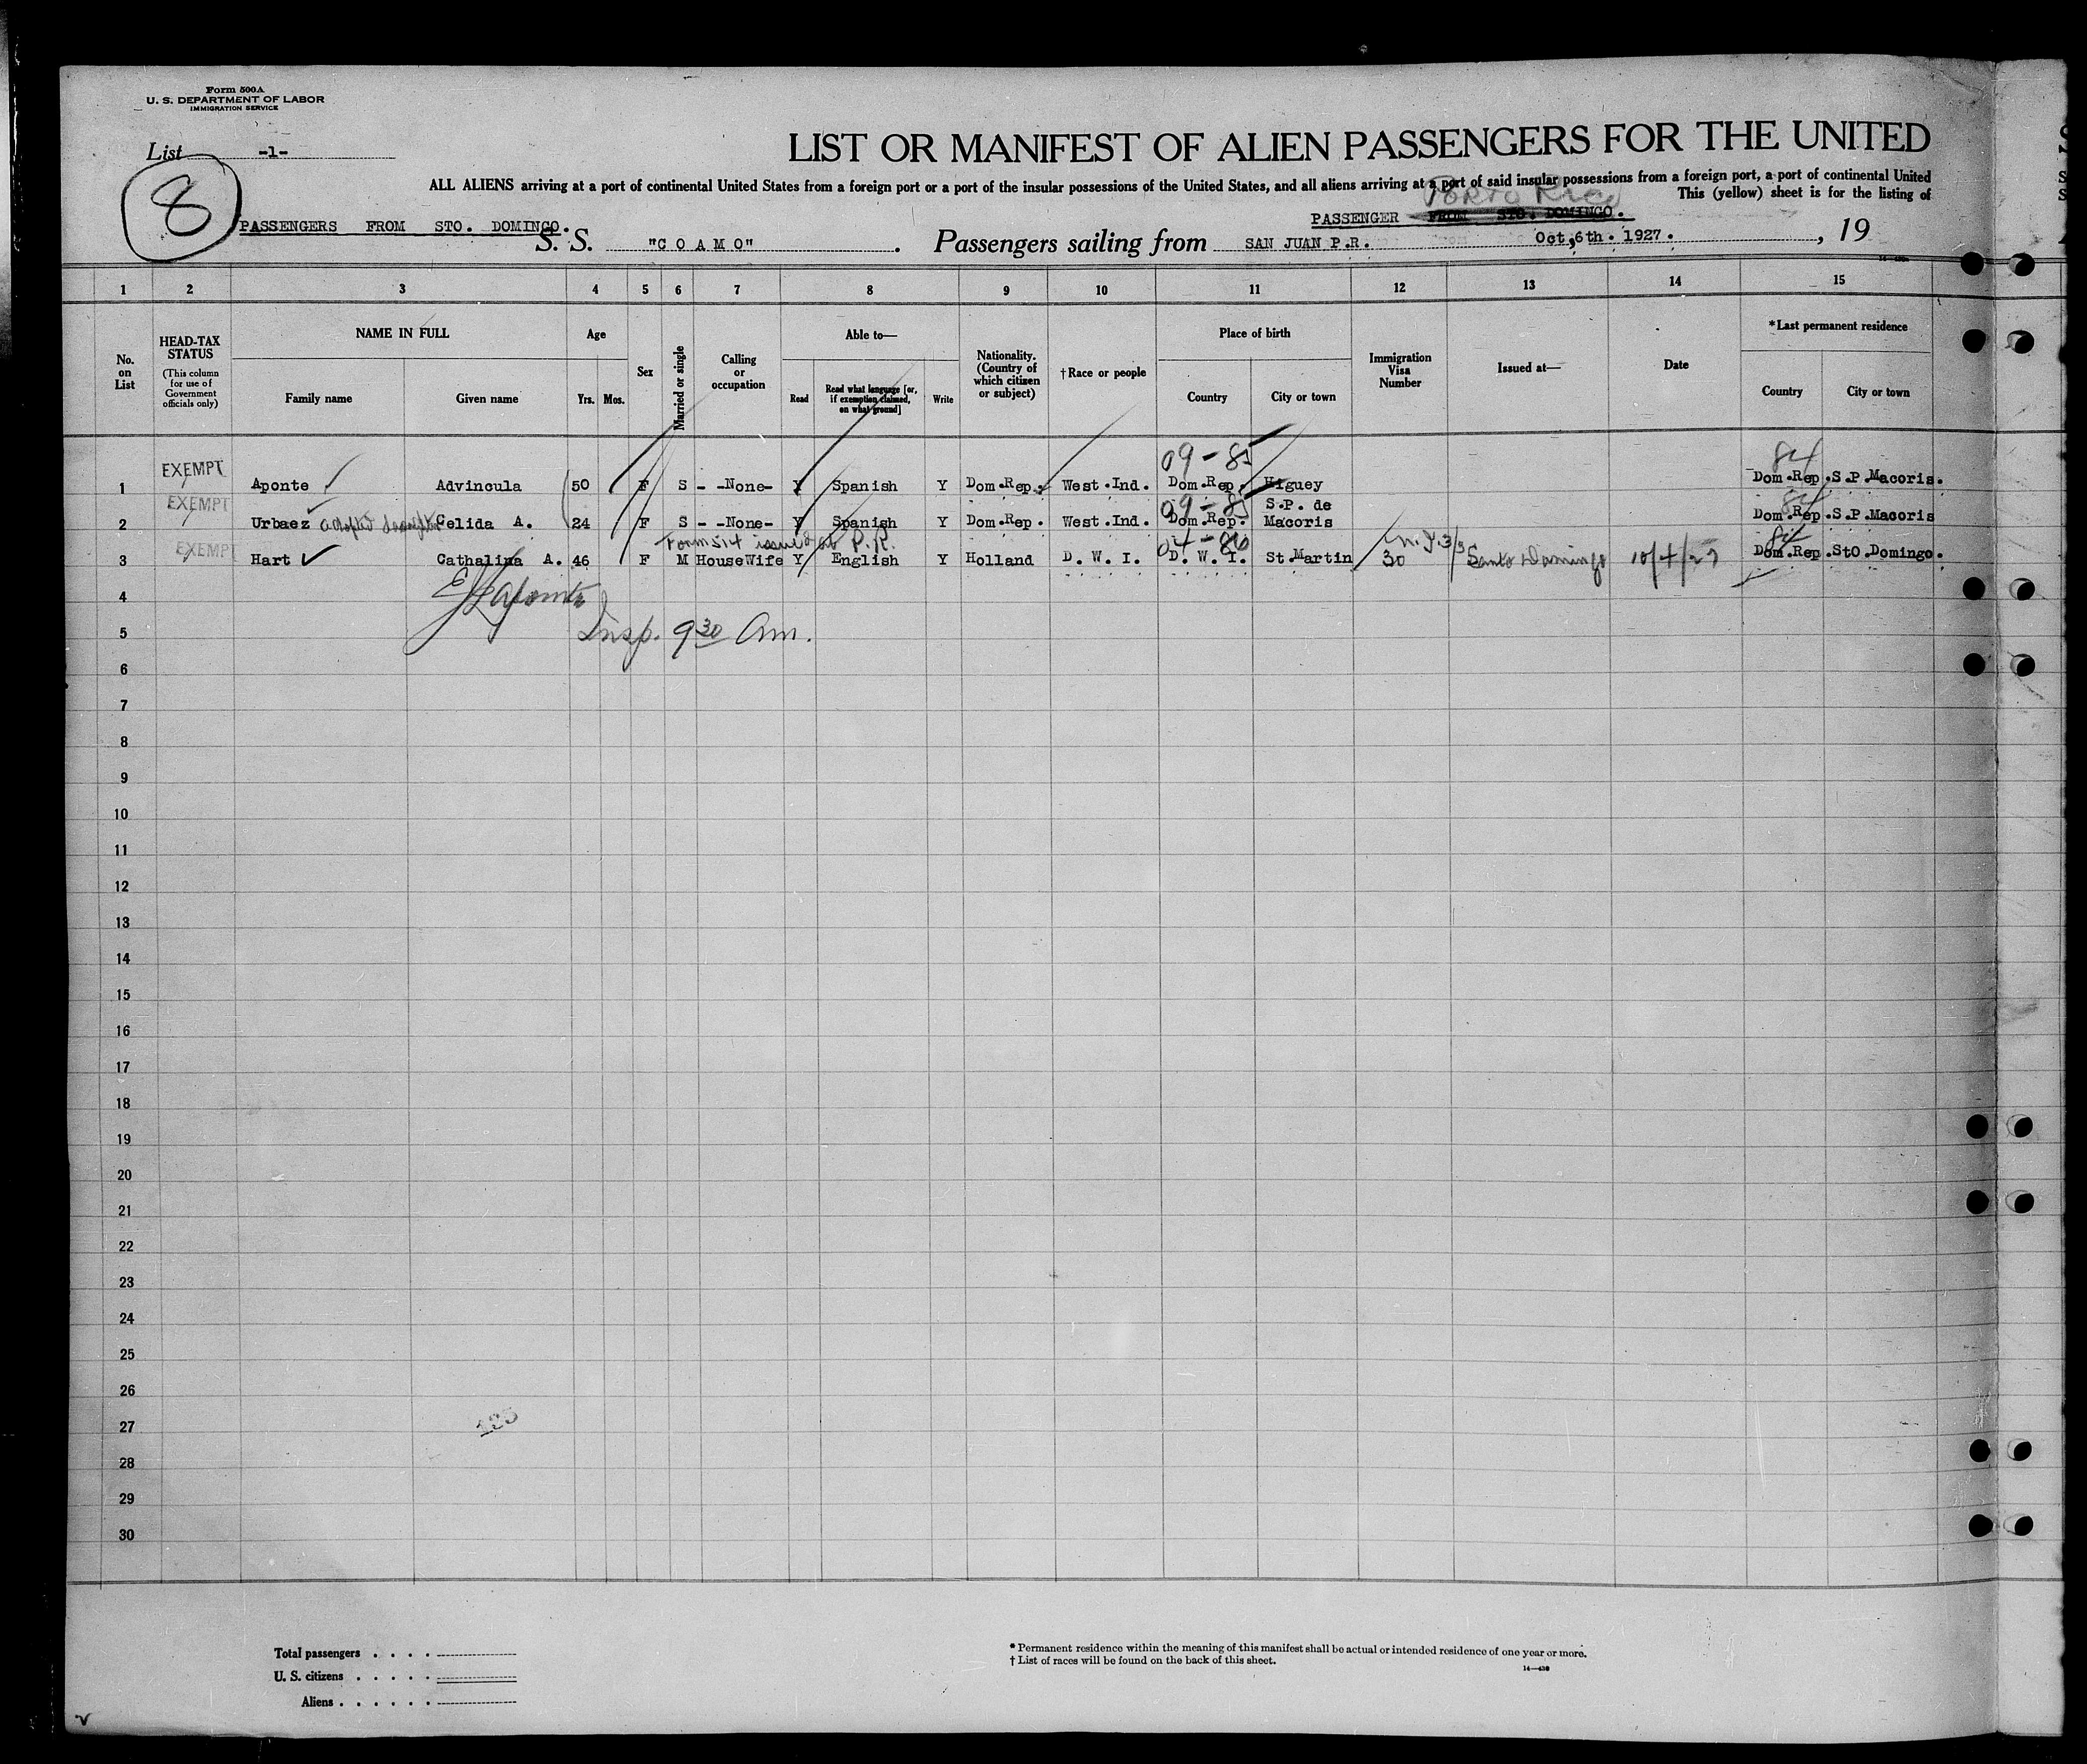 Form 500A
U. S. DEPARTMENT OF LABOR
IMMIGRATION SERVICE
List -1-
8
LIST OR MANIFEST OF ALIEN PASSENGERS FOR THE UNITED
ALL ALIENS arriving at a port of continental United States from a foreign port or a port of the insular possessions of the United States, and all aliens arriving at a port of said insular possessions from a foreign port, a port of continental United
This (yellow) sheet is for the listing of
Porto Rico
PASSENGERS FROM STO. DOMINGO.
PASSENGER FROM STO. DOMINGO.
S. S. "C O A M O" . Passengers sailing from SAN JUAN P.R. Oct,6th. 1927. , 19
1 2 3 4 5 6 7 8 9 10 11 12 13 14 15
No. on List
HEAD-TAX STATUS
(This column for use of Government officials only)
NAME IN FULL
Family name Given name
Age
Yrs. Mos.
Sex
Married or single
Calling or occupation
Able to—
Read
Read what language [or, if exemption claimed, on what ground]
Write
Nationality. (Country of which citizen or subject)
†Race or people
Place of birth
Country City or town
Immigration Visa Number
Issued at—
Date
*Last permanent residence
Country City or town
09-85 84
1 EXEMPT Aponte Advincula 50 F S - -None- Y Spanish Y Dom.Rep. West.Ind. Dom.Rep. Higuey Dom.Rep.S.P.Macoris.
09-85 84
2 EXEMPT Urbaez adopted daughter Celida A. 24 F S - -None- Y Spanish Y Dom.Rep. West.Ind. Dom.Rep. S.P. de Macoris Dom.Rep.S.P.Macoris
Form 514 issued at P.R. 84
3 EXEMPT Hart Cathalina A. 46 F M HouseWife Y English Y Holland D. W. I. D. W. I. St.Martin 30 Santo Domingo 10/4/27 Dom.Rep.StO.Domingo.
4
Insp. 9 30 Am.
5
6
7
8
9
10
11
12
13
14
15
16
17
18
19
20
21
22
23
24
25
26
27
125
28
29
30
Total passengers . . . .
U. S. citizens . . . . .
Aliens . . . . . .
* Permanent residence within the meaning of this manifest shall be actual or intended residence of one year or more.
† List of races will be found on the back of this sheet.
14—430